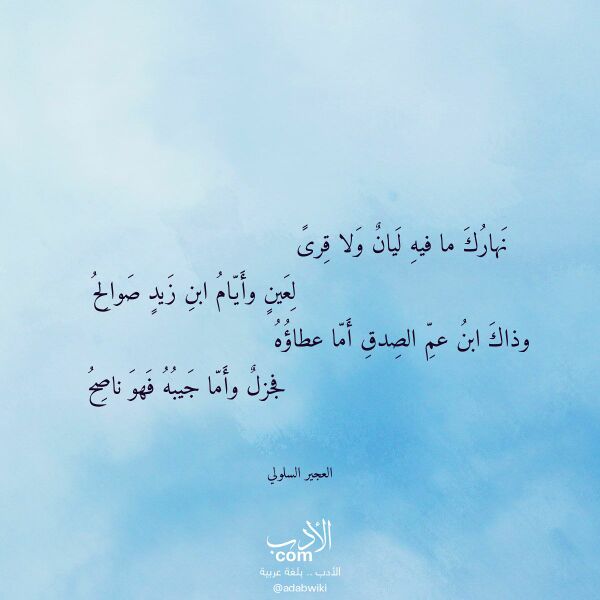 نَهارُكَ ما فيهِ لَيانٌ وَلا قِرىً
لِعَينٍ وأَيّامُ ابنِ زَيدٍ صَوالِحُ
وذاكَ ابنُ عمِّ الصِدقِ أَمّا عطاؤُهُ
فجزلٌ وأَمّا جَيبُهُ فَهوَ ناصِحُ
العجير السلولي
الأدب
com
الأدب .. بلغة عربية
@adabwiki